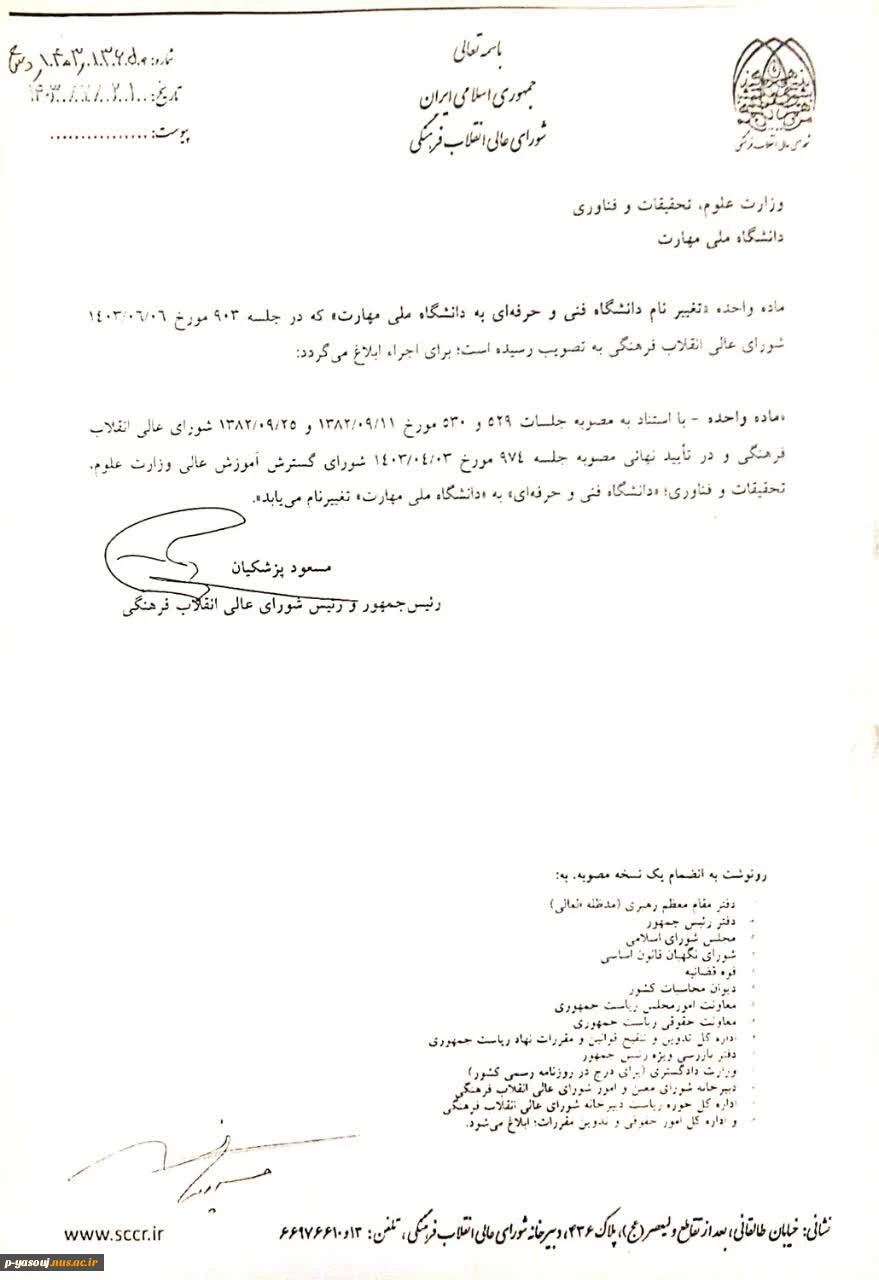 باسمه تعالی
جمهوری اسلامی ایران
شورای عالی انقلاب فرهنگی
شماره:
تاریخ:
پیوست: ................
شورای عالی انقلاب فرهنگی
وزارت علوم، تحقیقات و فناوری
دانشگاه ملی مهارت
ماده واحده «تغییر نام دانشگاه فنی و حرفه‌ای به دانشگاه ملی مهارت» که در جلسه ۹۰۳ مورخ ۱۴۰۳/۰۶/۰۶
شورای عالی انقلاب فرهنگی به تصویب رسیده است؛ برای اجراء ابلاغ می‌گردد:
«ماده واحده – با استناد به مصوبه جلسات ۵۲۹ و ۵۳۰ مورخ ۱۳۸۲/۰۹/۱۱ و ۱۳۸۲/۰۹/۲۵ شورای عالی انقلاب
فرهنگی و در تأیید نهائی مصوبه جلسه ۹۷۴ مورخ ۱۴۰۳/۰۴/۰۳ شورای گسترش آموزش عالی وزارت علوم،
تحقیقات و فناوری؛ «دانشگاه فنی و حرفه‌ای» به «دانشگاه ملی مهارت» تغییرنام می‌یابد».
مسعود پزشکیان
رئیس‌جمهور و رئیس شورای عالی انقلاب فرهنگی
رونوشت به انضمام یک نسخه مصوبه، به:
دفتر مقام معظم رهبری (مدظله العالی)
دفتر رئیس جمهور
مجلس شورای اسلامی
شورای نگهبان قانون اساسی
قوه قضائیه
دیوان محاسبات کشور
معاونت امورمجلس ریاست جمهوری
معاونت حقوقی ریاست جمهوری
اداره کل تدوین و تنقیح قوانین و مقررات نهاد ریاست جمهوری
دفتر بازرسی ویژه رئیس جمهور
وزارت دادگستری (برای درج در روزنامه رسمی کشور)
دبیرخانه شورای معین و امور شورای عالی انقلاب فرهنگی
اداره کل حوزه ریاست دبیرخانه شورای عالی انقلاب فرهنگی
و اداره کل امور حقوقی و تدوین مقررات؛ ابلاغ می‌شود.
نشانی: خیابان طالقانی، بعد از تقاطع ولیعصر (عج)، پلاک ۴۳۶، دبیرخانه شورای عالی انقلاب فرهنگی، تلفن: ۱۳ و ۶۶۹۷۶۶۱۰
www.sccr.ir
p-yasouj.nus.ac.ir